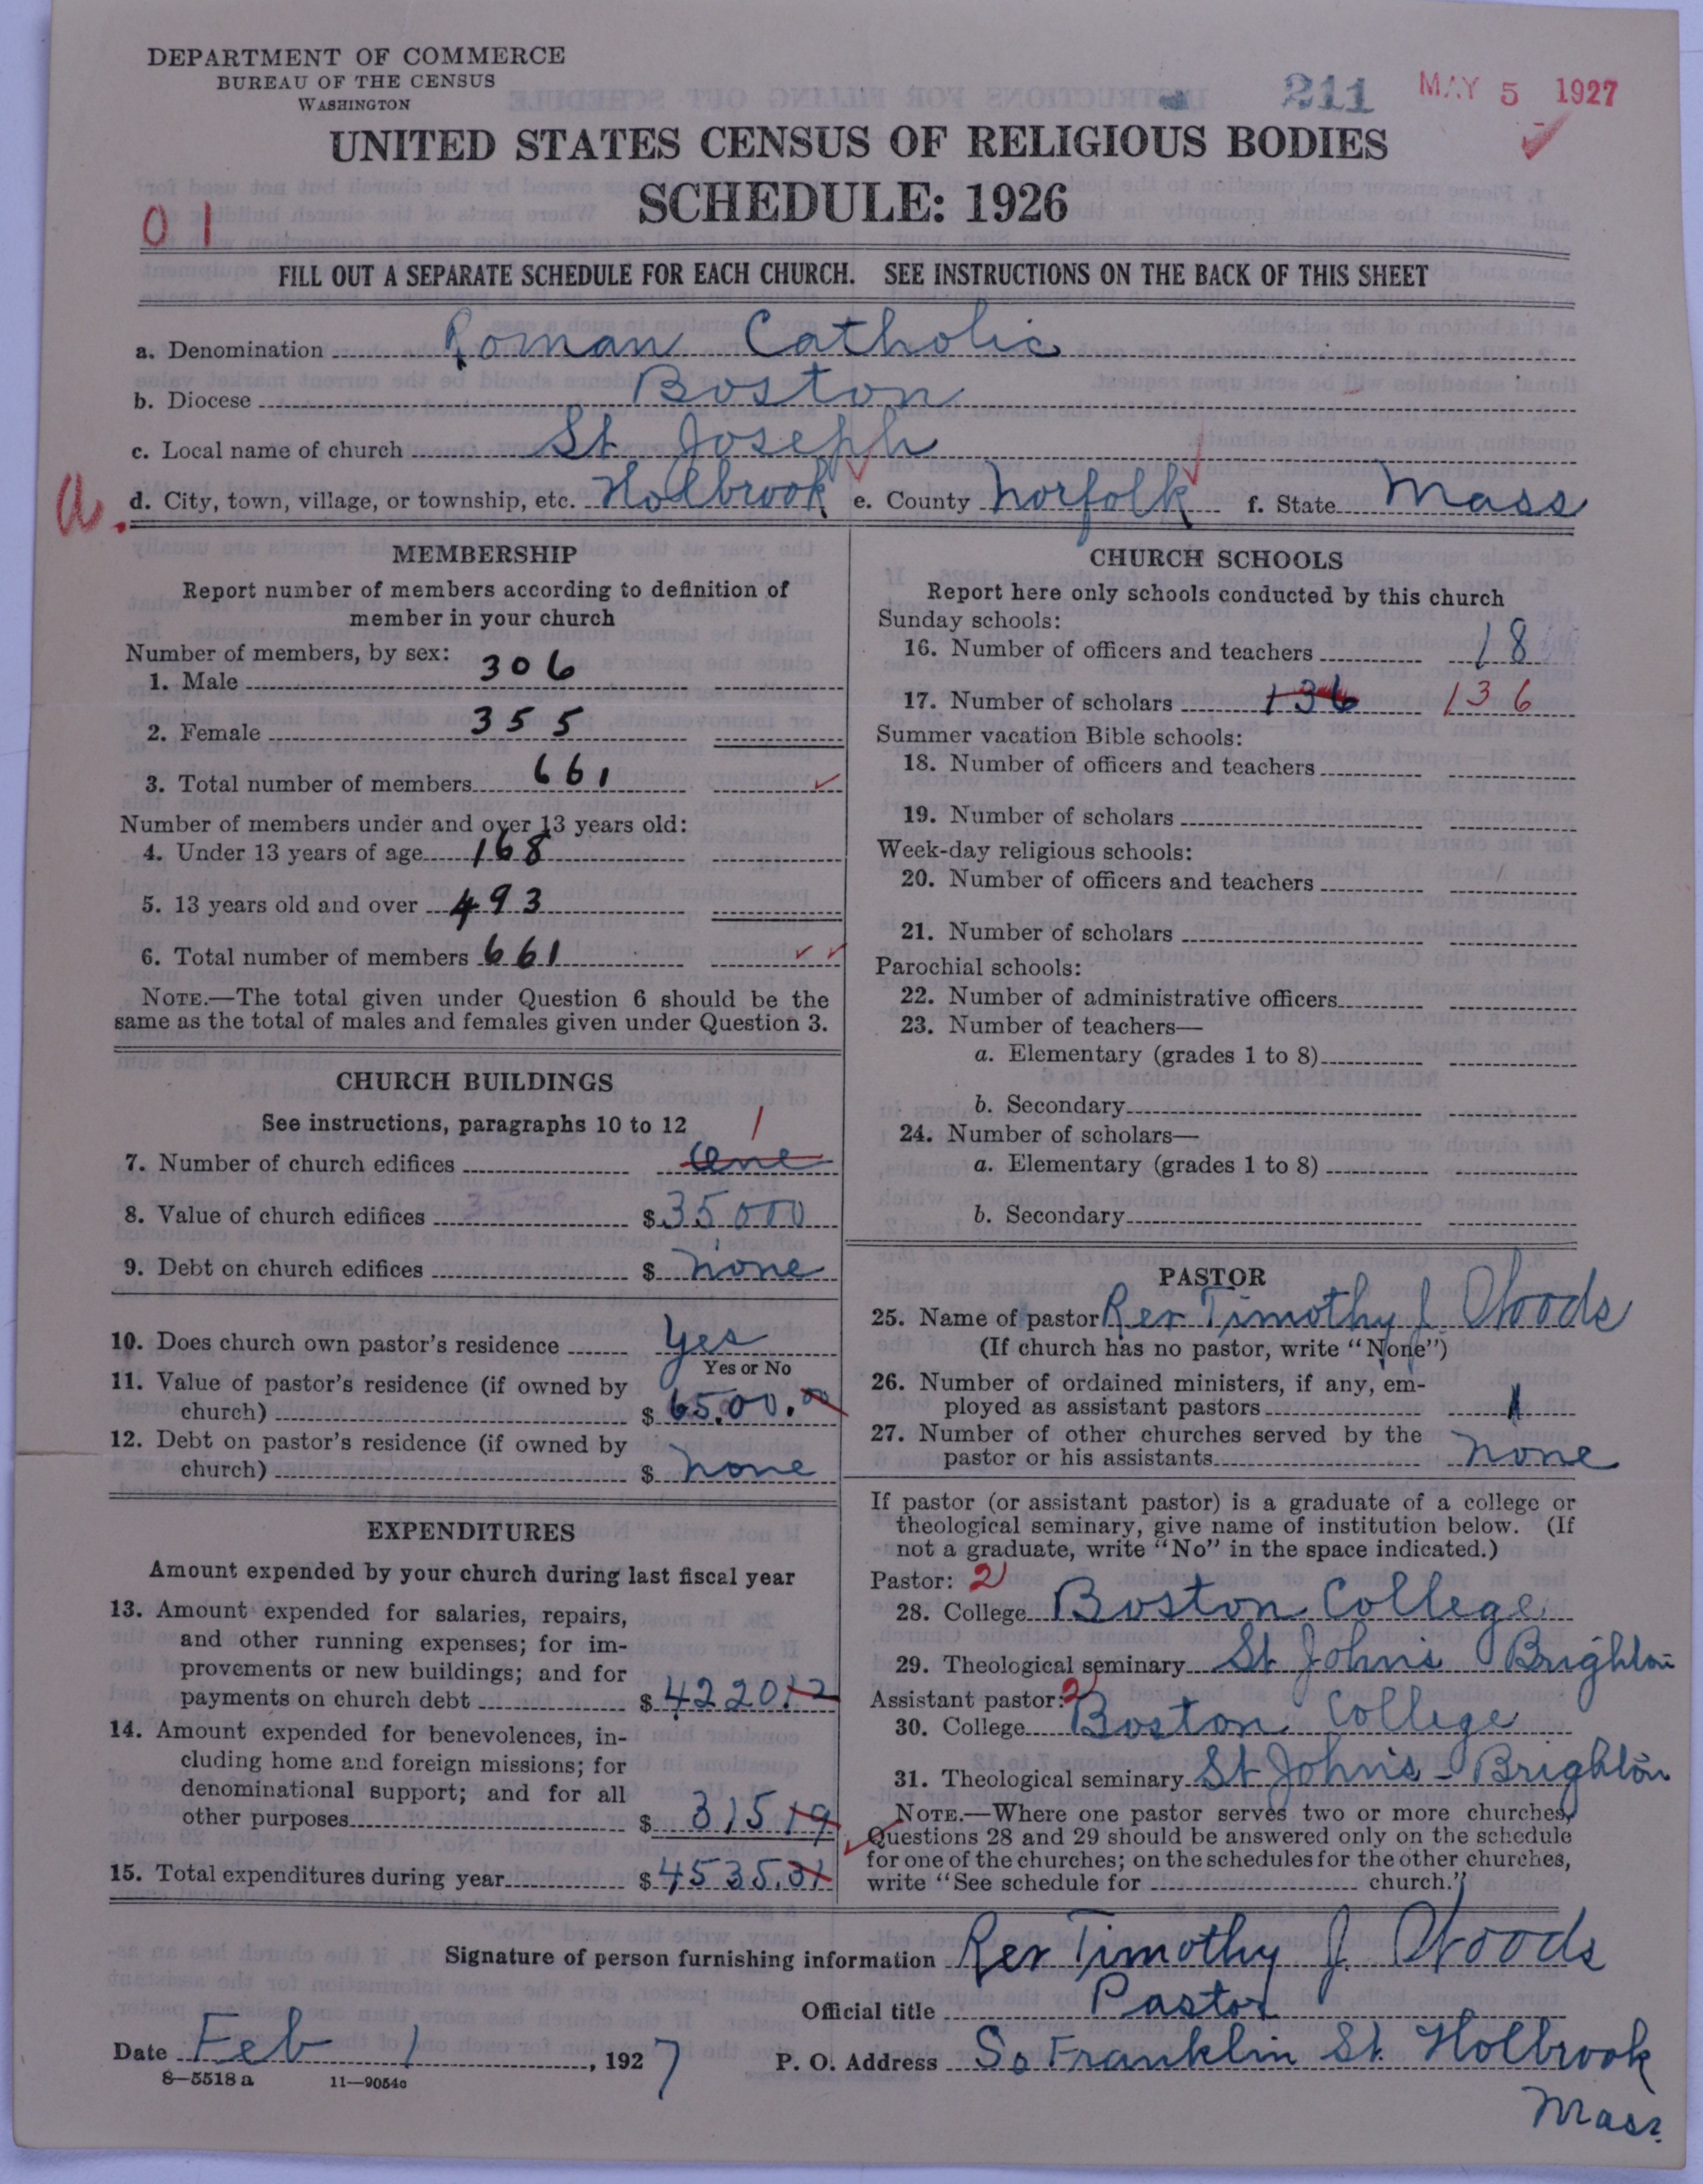 DEPARTMENT OF COMMERCE
BUREAU OF THE CENSUS
WASHINGTON
211 MAY 5 1927
UNITED STATES CENSUS OF RELIGIOUS BODIES
SCHEDULE: 1926
01
FILL OUT A SEPARATE SCHEDULE FOR EACH CHURCH. SEE INSTRUCTIONS ON THE BACK OF THIS SHEET
a. Denomination Roman Catholic
b. Diocese Boston
c. Local name of church St Joseph
a. d. City, town, village, or township, etc. Holbrook e. County Norfolk f. State Mass
MEMBERSHIP
Report number of members according to definition of
member in your church
Number of members, by sex:
1. Male 306
2. Female 355
3. Total number of members 661
Number of members under and over 13 years old:
4. Under 13 years of age 168
5. 13 years old and over 493
6. Total number of members 661
NOTE.—The total given under Question 6 should be the
same as the total of males and females given under Question 3.
CHURCH BUILDINGS
See instructions, paragraphs 10 to 12 1
7. Number of church edifices One
8. Value of church edifices $ 35000
9. Debt on church edifices $ none
10. Does church own pastor's residence yes
Yes or No
11. Value of pastor's residence (if owned by
church) $ 6500.00
12. Debt on pastor's residence (if owned by
church) $ none
EXPENDITURES
Amount expended by your church during last fiscal year
13. Amount expended for salaries, repairs,
and other running expenses; for im-
provements or new buildings; and for
payments on church debt $ 4220.12
14. Amount expended for benevolences, in-
cluding home and foreign missions; for
denominational support; and for all
other purposes $ 315 19
15. Total expenditures during year $ 4535.31
CHURCH SCHOOLS
Report here only schools conducted by this church
Sunday schools:
16. Number of officers and teachers 18
17. Number of scholars 136 136
Summer vacation Bible schools:
18. Number of officers and teachers
19. Number of scholars
Week-day religious schools:
20. Number of officers and teachers
21. Number of scholars
Parochial schools:
22. Number of administrative officers
23. Number of teachers—
a. Elementary (grades 1 to 8)
b. Secondary
24. Number of scholars—
a. Elementary (grades 1 to 8)
b. Secondary
PASTOR
25. Name of pastor Rev Timothy J. Woods
(If church has no pastor, write "None")
26. Number of ordained ministers, if any, em-
ployed as assistant pastors 1
27. Number of other churches served by the
pastor or his assistants none
If pastor (or assistant pastor) is a graduate of a college or
theological seminary, give name of institution below. (If
not a graduate, write "No" in the space indicated.)
Pastor: 2
28. College Boston College
29. Theological seminary St Johns Brighton
Assistant pastor: 2
30. College Boston College
31. Theological seminary St Johns - Brighton
NOTE.—Where one pastor serves two or more churches,
Questions 28 and 29 should be answered only on the schedule
for one of the churches; on the schedules for the other churches,
write "See schedule for church."
Signature of person furnishing information Rev Timothy J. Woods
Official title Pastor
Date Feb 1, 1927 P. O. Address So Franklin St. Holbrook
8—5518 a 11—9054c
Mass.